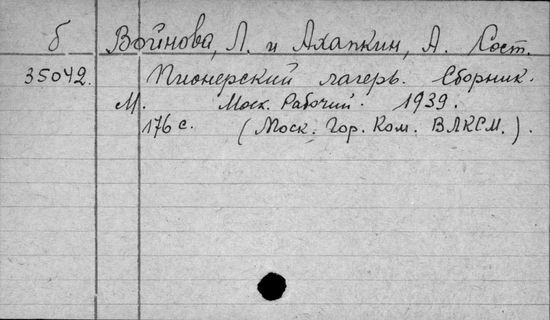 б Войнова, Л. и Ахапкин, А. Сост.
35042. Пионерский лагерь. Сборник.
М. Моск. Рабочий. 1939.
176 с. (Моск. Гор. Ком. ВЛКСМ.).